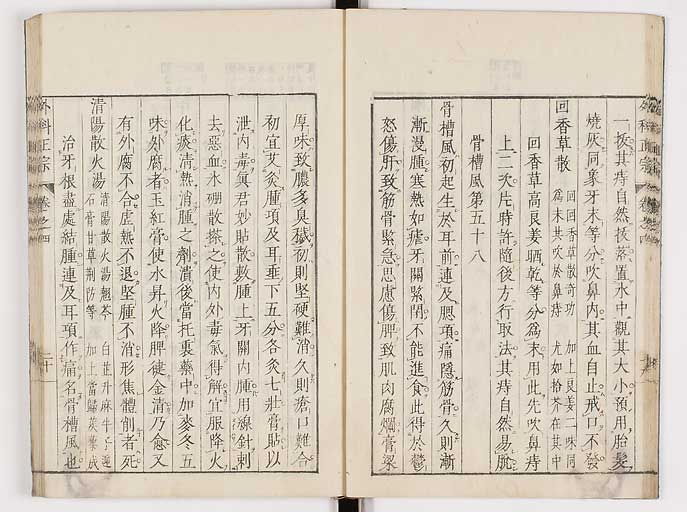 一拔其痔自然拔落置水中觀其大小預用胎髮
燒灰同象牙末等分吹鼻內其血自止戒口不發
回香草散
回回香草散奇功　加上良姜二味同
為末共吹於鼻痔　尤如拾芥在其中
回香草高良姜晒乾等分為末用此先吹鼻痔
上二次片時許隨後方行取法其痔自然易脫
骨槽風第五十八
骨槽風初起生於耳前連及腮項痛隱筋骨久則漸
漸漫腫寒熱如瘧牙關緊閉不能進食此得於鬱
怒傷肝致筋骨緊急思慮傷脾致肌肉腐爛膏粱
外科正宗
卷之四
厚味致膿多臭穢初則堅硬難消久則瘡口難合
初宜艾灸腫項及耳垂下五分各灸七壯膏貼以
泄內毒真君妙貼散敷腫上牙關內腫用線針刺
去惡血水硼散搽之使內外毒氣得解宜服降火
化痰清熱消腫之劑潰後當托裏藥中加麥冬五
味外腐者玉紅膏使水昇火降脾健金清乃愈又
有外腐不合虛熱不退堅腫不消形焦體削者死
清陽散火湯
清陽散火湯翹芩　白芷升麻牛子
石膏甘草荊防等　加上當歸蒺藜成
治牙根盡處結腫連及耳項作痛名骨槽風也
外科正宗
卷之四
二十